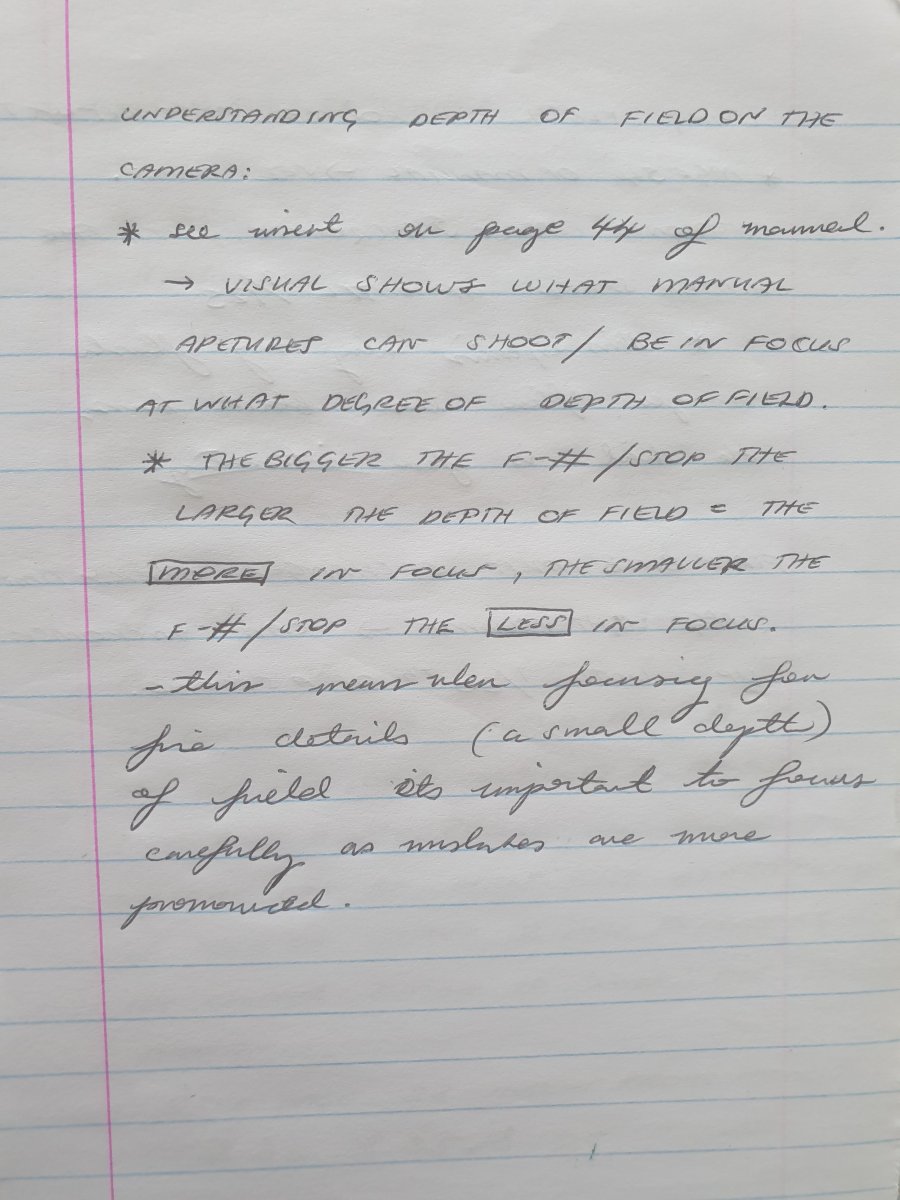 UNDERSTANDING DEPTH OF FIELD ON THE
CAMERA:
* see insert on page 44 of manual.
→ VISUAL SHOWS WHAT MANUAL
APETURES CAN SHOOT/ BE IN FOCUS
AT WHAT DEGREE OF DEPTH OF FIELD.
* THE BIGGER THE F-#/STOP THE
LARGER THE DEPTH OF FIELD = THE
MORE IN FOCUS, THE SMALLER THE
F-#/STOP THE LESS IN FOCUS.
- this means when focusing for
fine details (a small depth)
of field its important to focus
carefully as mistakes are more
pronounced.